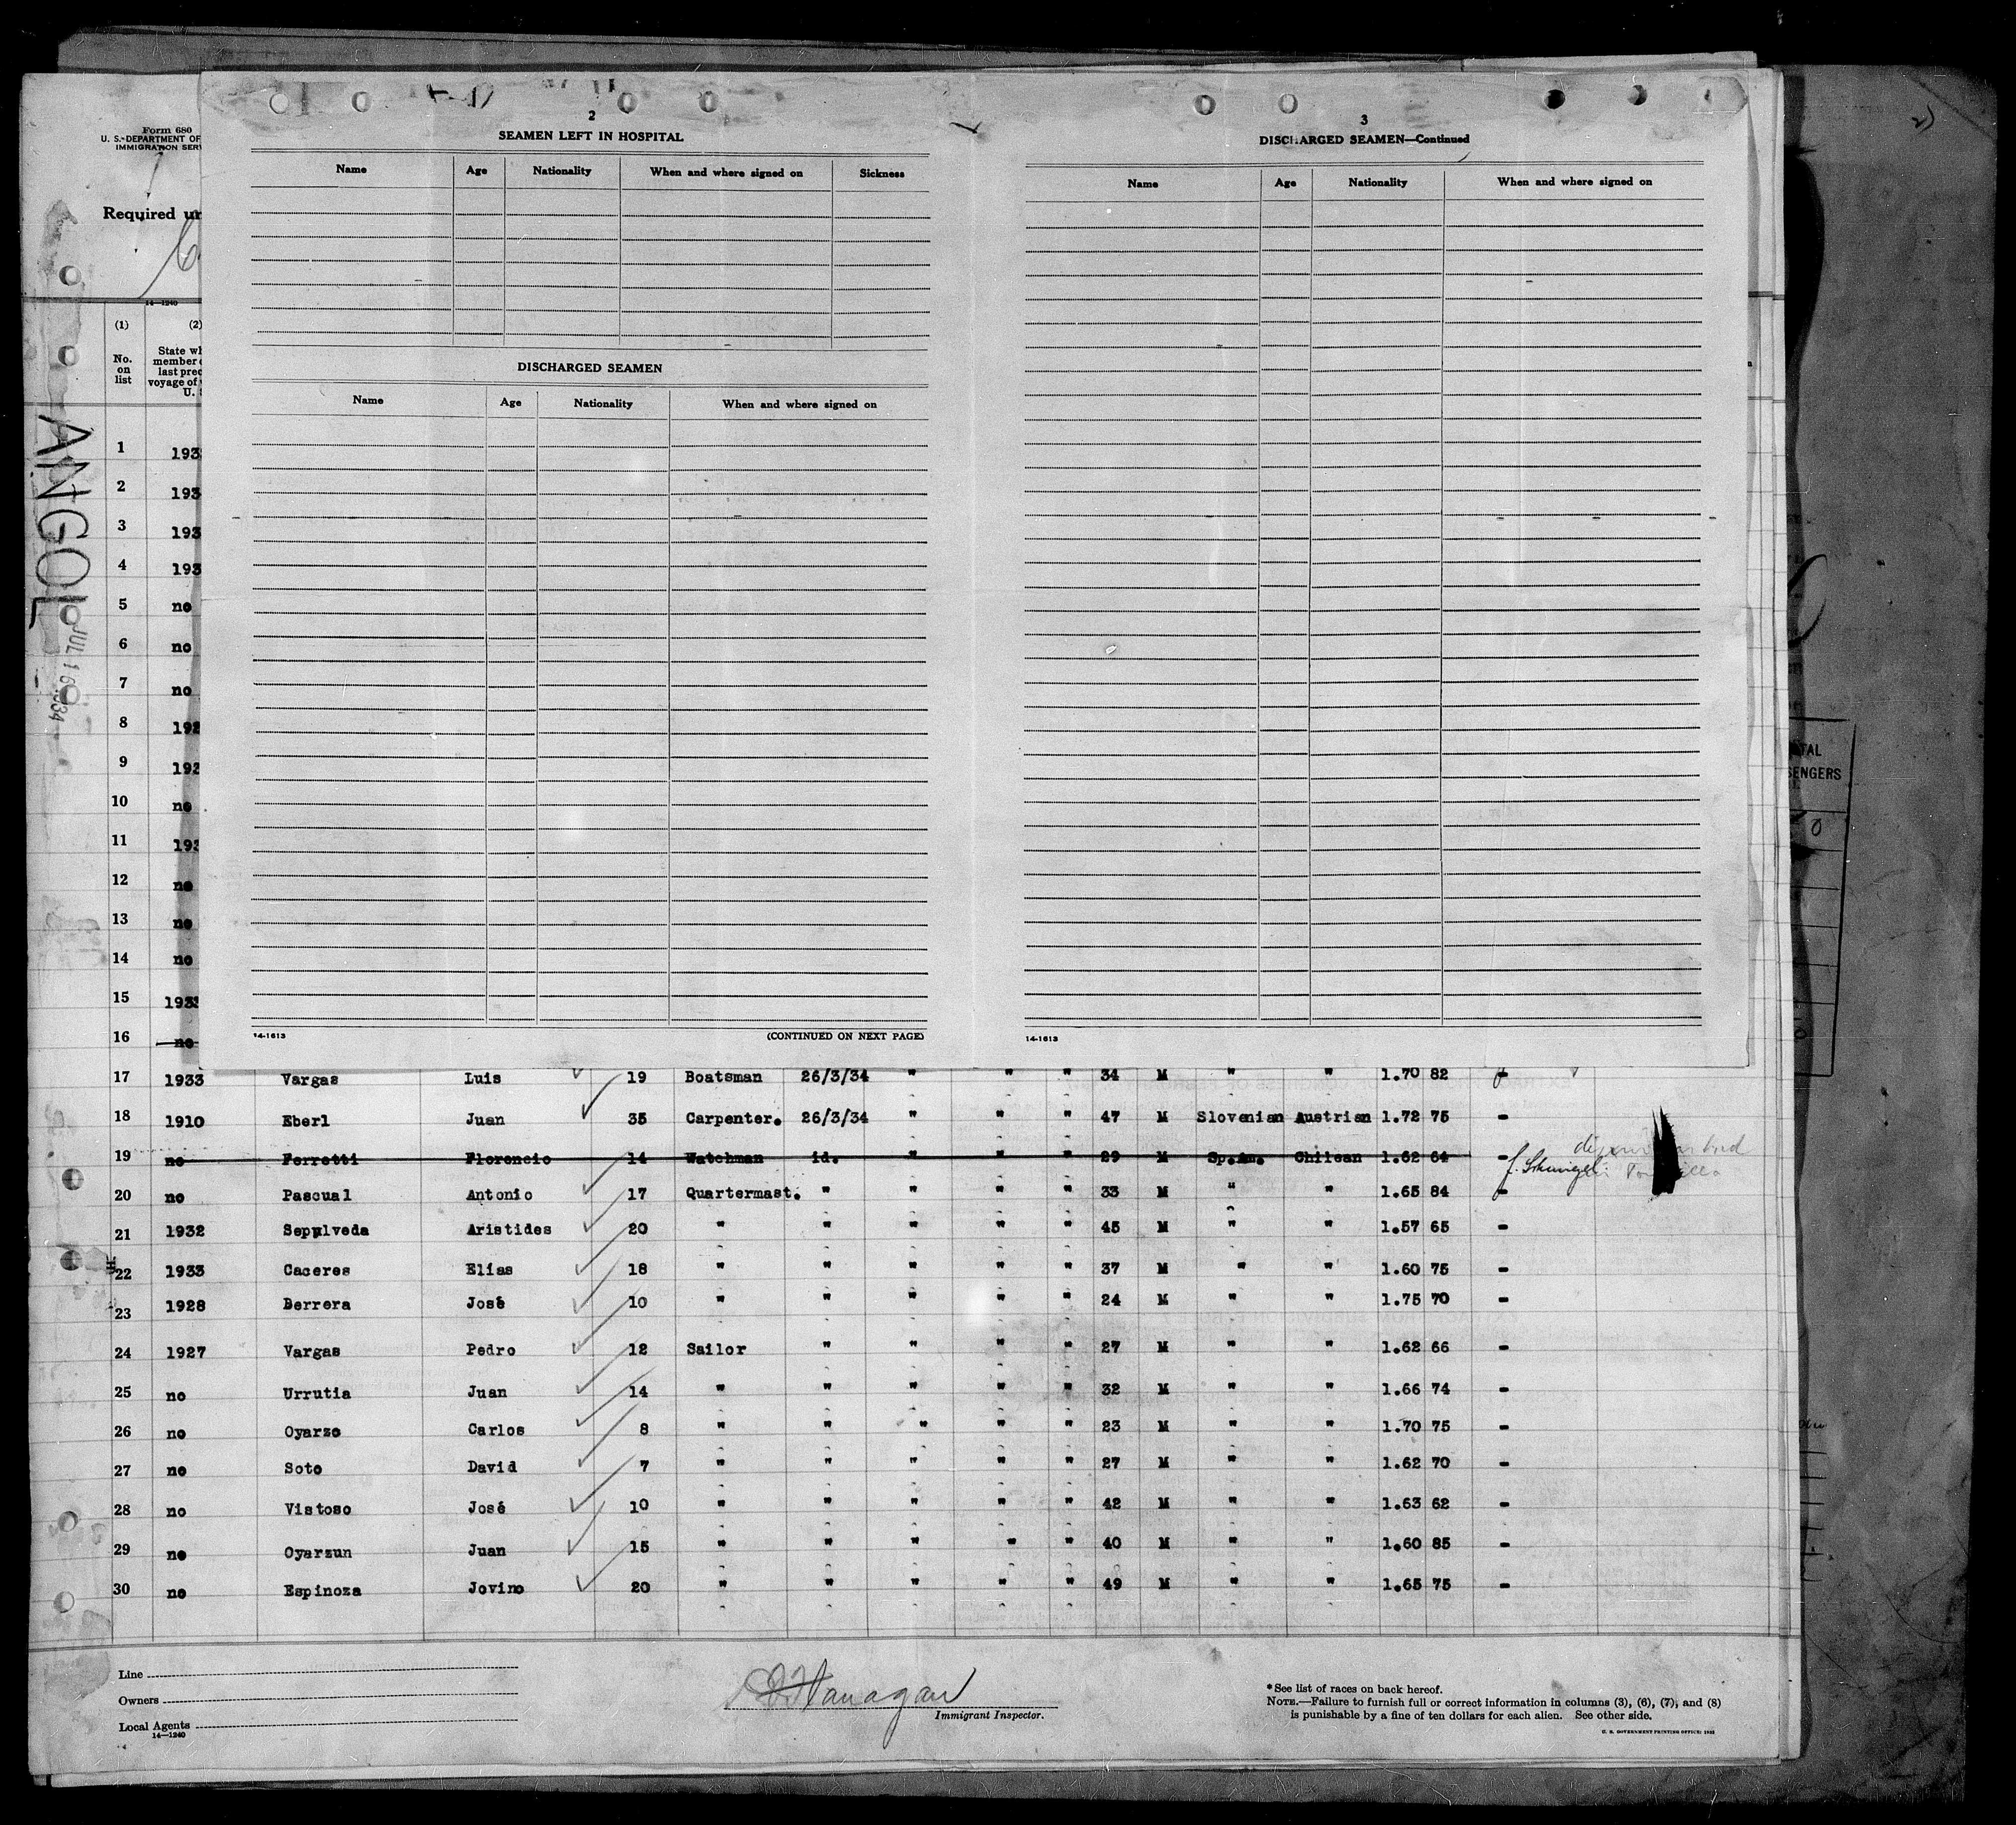 Form 680
U. S. DEPARTMENT OF
IMMIGRATION SERV
Required un
14—1240
(1) (2)
No. on list
State wh
member
last prec
voyage of
U. S
ANGOL
JUL 16 1934
2
SEAMEN LEFT IN HOSPITAL
Name Age Nationality When and where signed on Sickness
DISCHARGED SEAMEN
Name Age Nationality When and where signed on
14-1613 (CONTINUED ON NEXT PAGE)
3
DISCHARGED SEAMEN—Continued
Name Age Nationality When and where signed on
14-1613
TAL
SENGERS
0
1 193
2 193
3 193
4 193
5 no
6 no
7 no
8 192
9 192
10 no
11 193
12 no
13 no
14 no
15 1933
16 no
17 1933 Vargas Luis 19 Boatsman 26/3/34 " " " 34 M " " 1.70 82 -
18 1910 Eberl Juan 35 Carpenter. 26/3/34 " " " 47 M Slovenian Austrian 1.72 75 -
19 no Ferretti Florencio 14 Watchman id. " " " 29 M Sp.Am. Chilean 1.62 64
20 no Pascual Antonio 17 Quartermast. " " " " 33 M " " 1.65 84 -
21 1932 Sepulveda Aristides 20 " " " " " 45 M " " 1.57 65 -
22 1933 Caceres Elias 18 " " " " " 37 M " " 1.60 75 -
23 1928 Berrera José 10 " " " " " 24 M " " 1.75 70 -
24 1927 Vargas Pedro 12 Sailor " " " " 27 M " " 1.62 66 -
25 no Urrutia Juan 14 " " " " " 32 M " " 1.66 74 -
26 no Oyarzo Carlos 8 " " " " " 23 M " " 1.70 75 -
27 no Soto David 7 " " " " " 27 M " " 1.62 70 -
28 no Vistoso José 10 " " " " " 42 M " " 1.63 62 -
29 no Oyarzun Juan 15 " " " " " 40 M " " 1.60 85 -
30 no Espinoza Jovino 20 " " " " " 49 M " " 1.65 75 -
Line
Owners
Local Agents
14—1240
Flanagan
Immigrant Inspector.
*See list of races on back hereof.
NOTE.—Failure to furnish full or correct information in columns (3), (6), (7), and (8)
is punishable by a fine of ten dollars for each alien. See other side.
U. S. GOVERNMENT PRINTING OFFICE: 1932